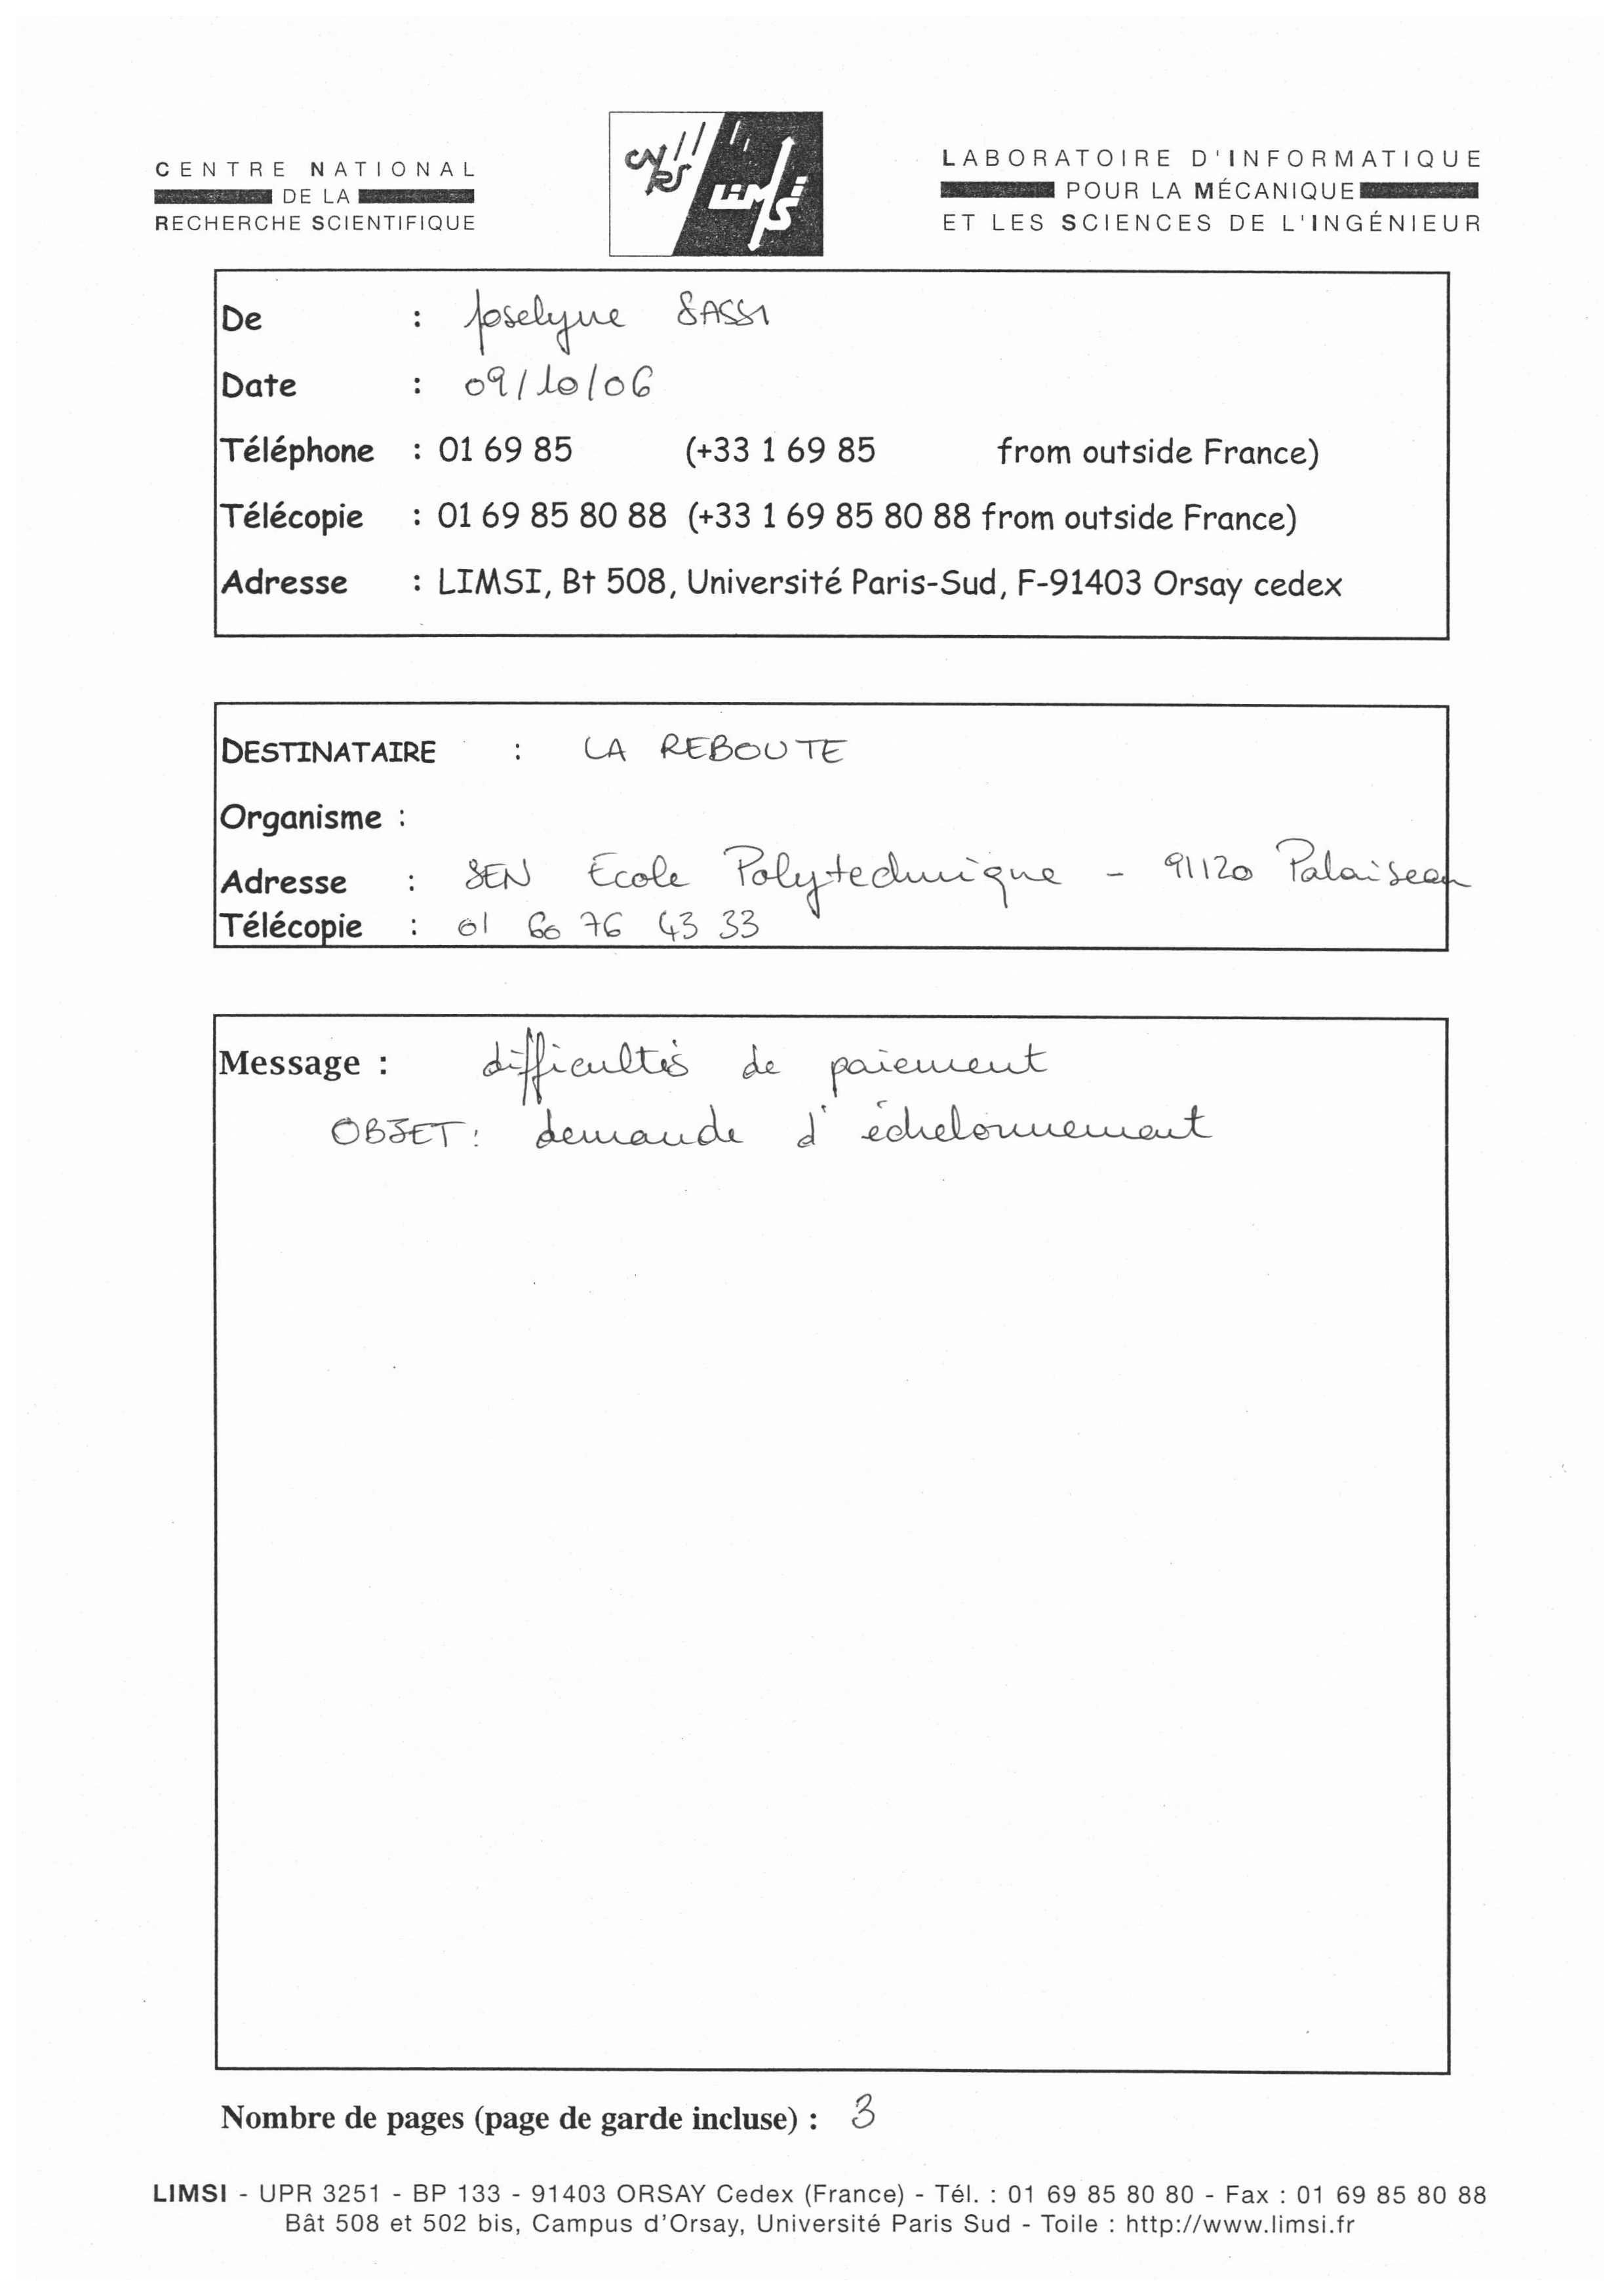 CENTRE NATIONAL
DE LA
RECHERCHE SCIENTIFIQUE
CNRS LIMSI
LABORATOIRE D'INFORMATIQUE
POUR LA MÉCANIQUE
ET LES SCIENCES DE L'INGÉNIEUR
De : Joselyne SASSI
Date : 09/10/06
Téléphone : 01 69 85 (+33 1 69 85 from outside France)
Télécopie : 01 69 85 80 88 (+33 1 69 85 80 88 from outside France)
Adresse : LIMSI, Bt 508, Université Paris-Sud, F-91403 Orsay cedex
DESTINATAIRE : LA REBOUTE
Organisme :
Adresse : SEN Ecole Polytechnique - 91120 Palaiseau
Télécopie : 01 60 76 43 33
Message : difficultés de paiement
OBJET : demande d'échelonnement
Nombre de pages (page de garde incluse) : 3
LIMSI - UPR 3251 - BP 133 - 91403 ORSAY Cedex (France) - Tél. : 01 69 85 80 80 - Fax : 01 69 85 80 88
Bât 508 et 502 bis, Campus d'Orsay, Université Paris Sud - Toile : http://www.limsi.fr